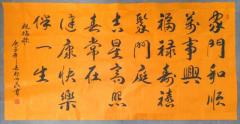 家門和順
萬事興
福禄壽禧
聚門庭
吉星高照
春常在
健康快樂
伴一生